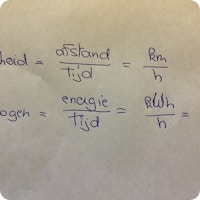 heid = afstand / tijd = km / h
ogen = energie / tijd = kWh / h =